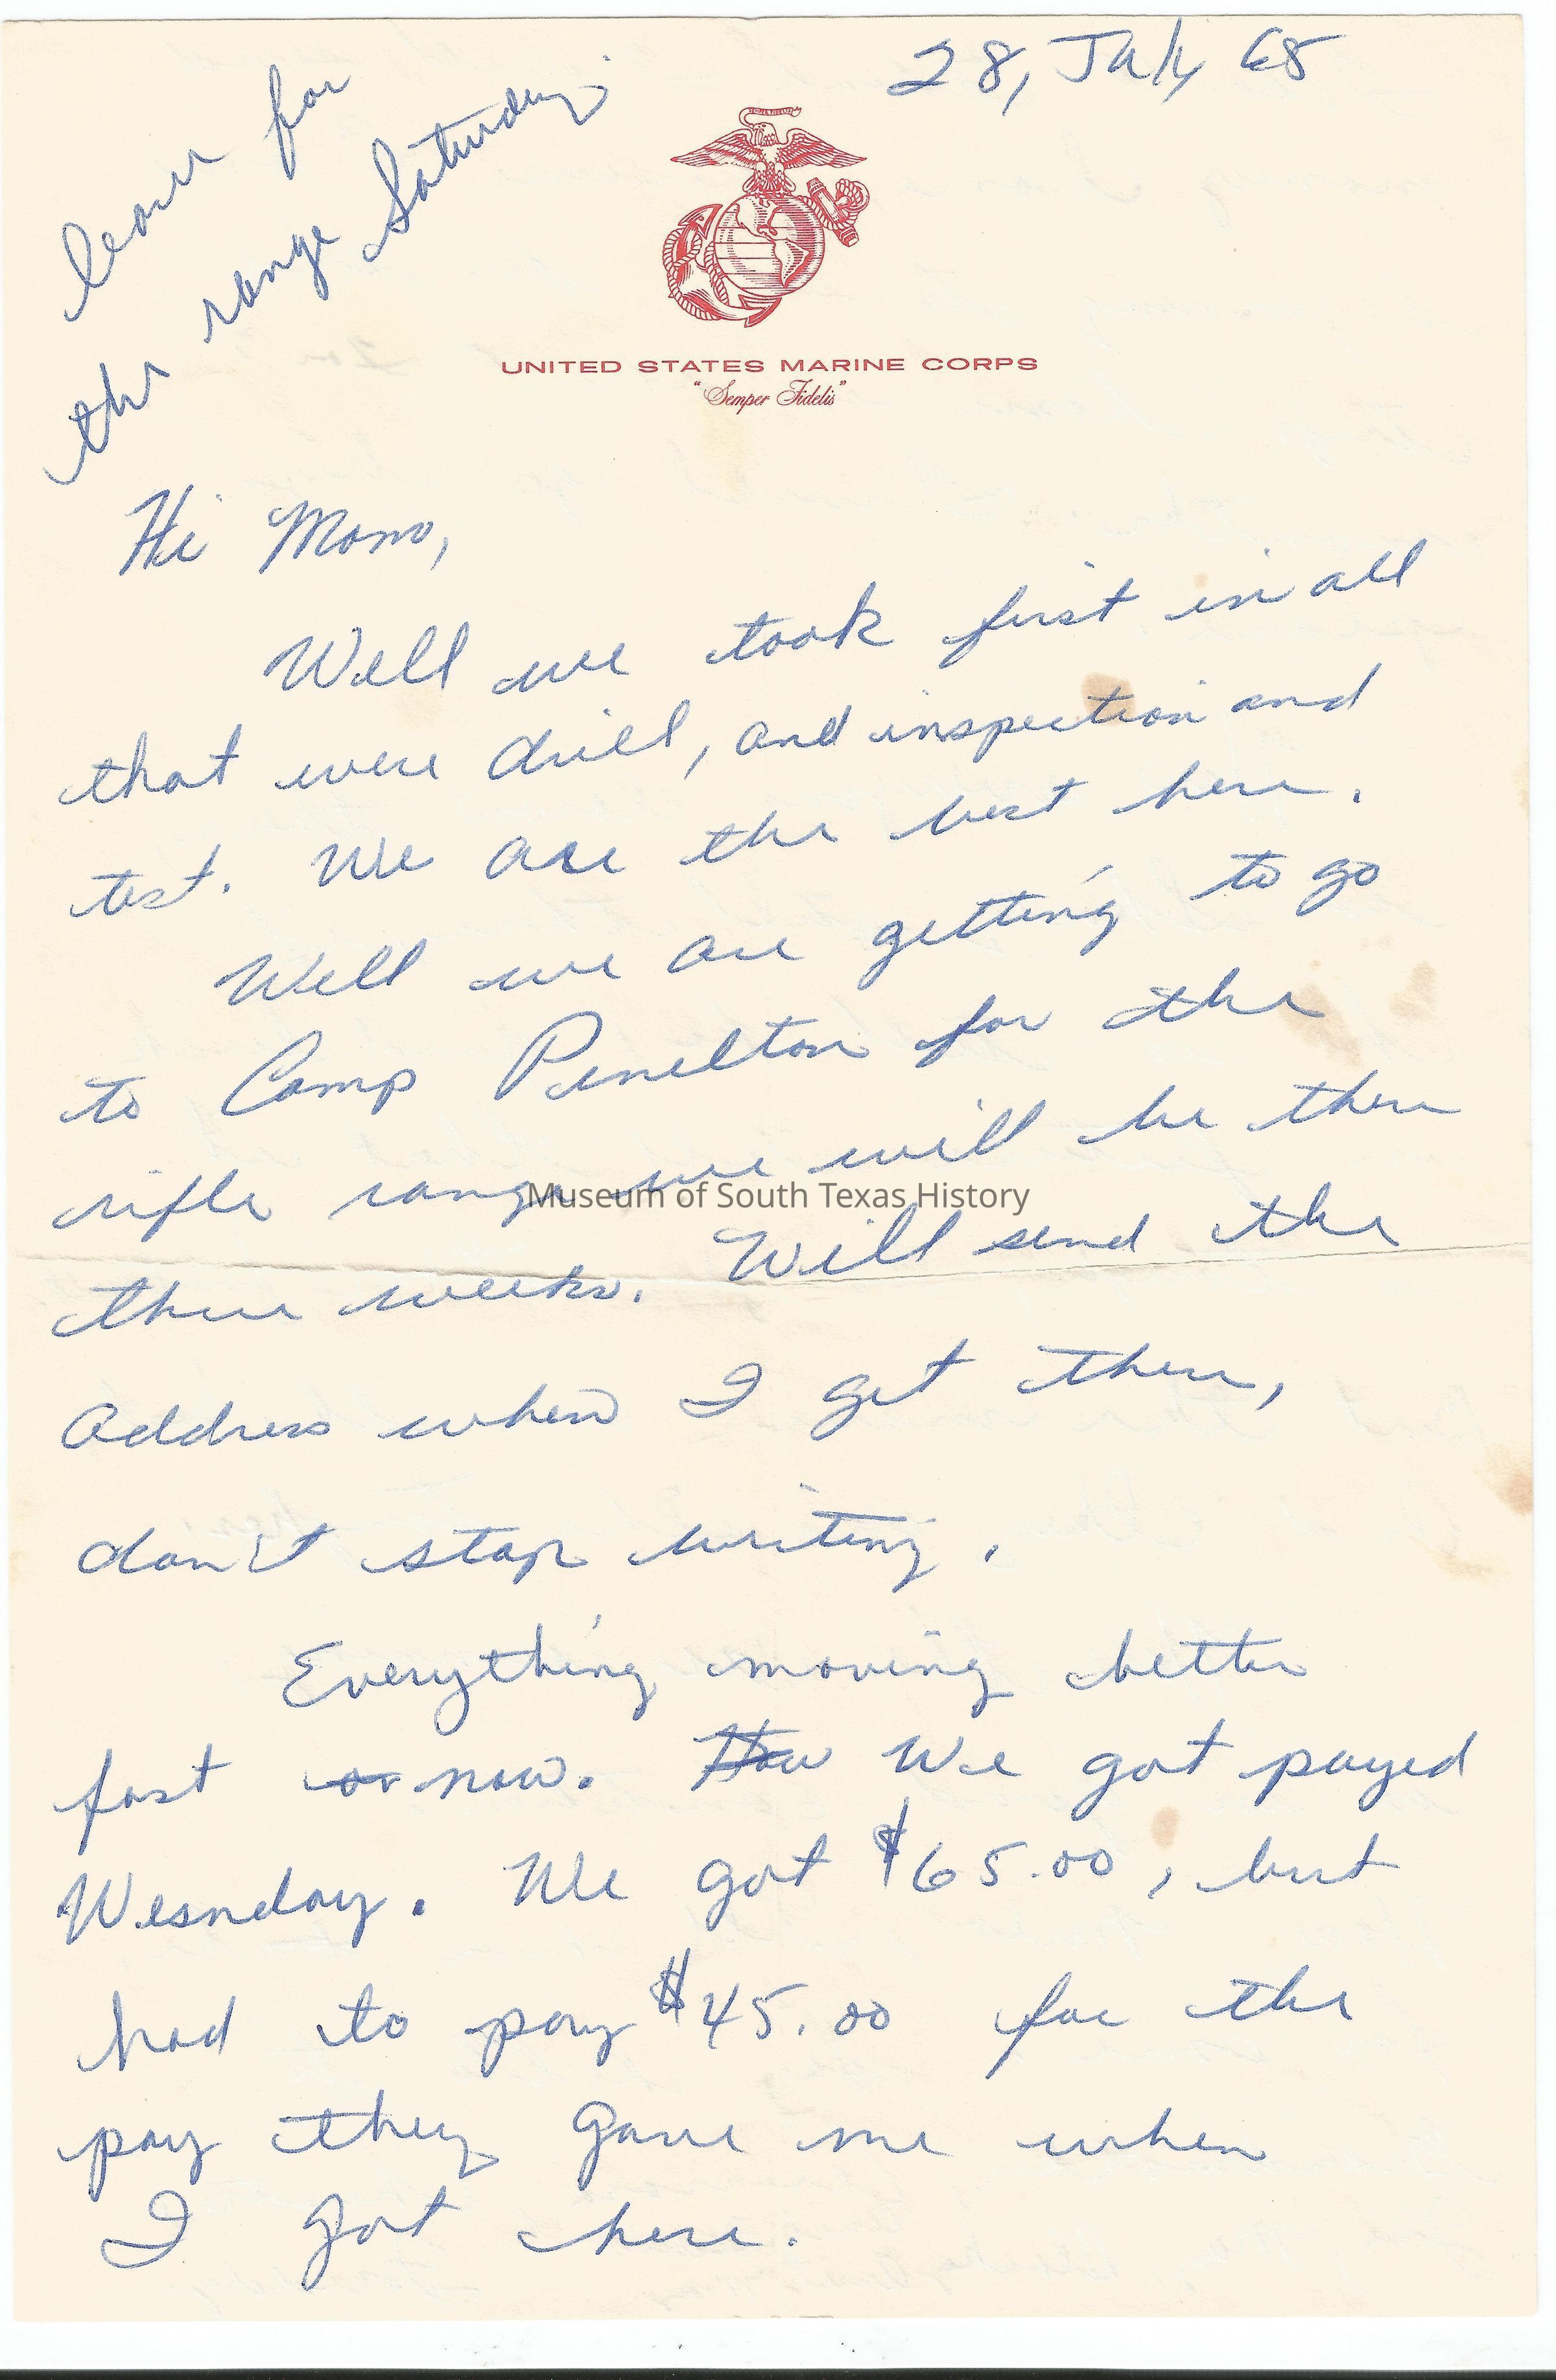 28, July 68
leave for
the range Saturday
UNITED STATES MARINE CORPS
"Semper Fidelis"
Hi Mom,
Well we took first in all
that were drill, and inspection and
test. We are the best here.
Well we are getting to go
to Camp Penelton for the
rifle range we will be there
three weeks. Will send the
Address when I get there,
don't stop writing.
Everything moving better
fast or now. How We got payed
Wesnday. We got $65.00, but
had to pay $45.00 for the
pay they gave me when
I got here.
Museum of South Texas History